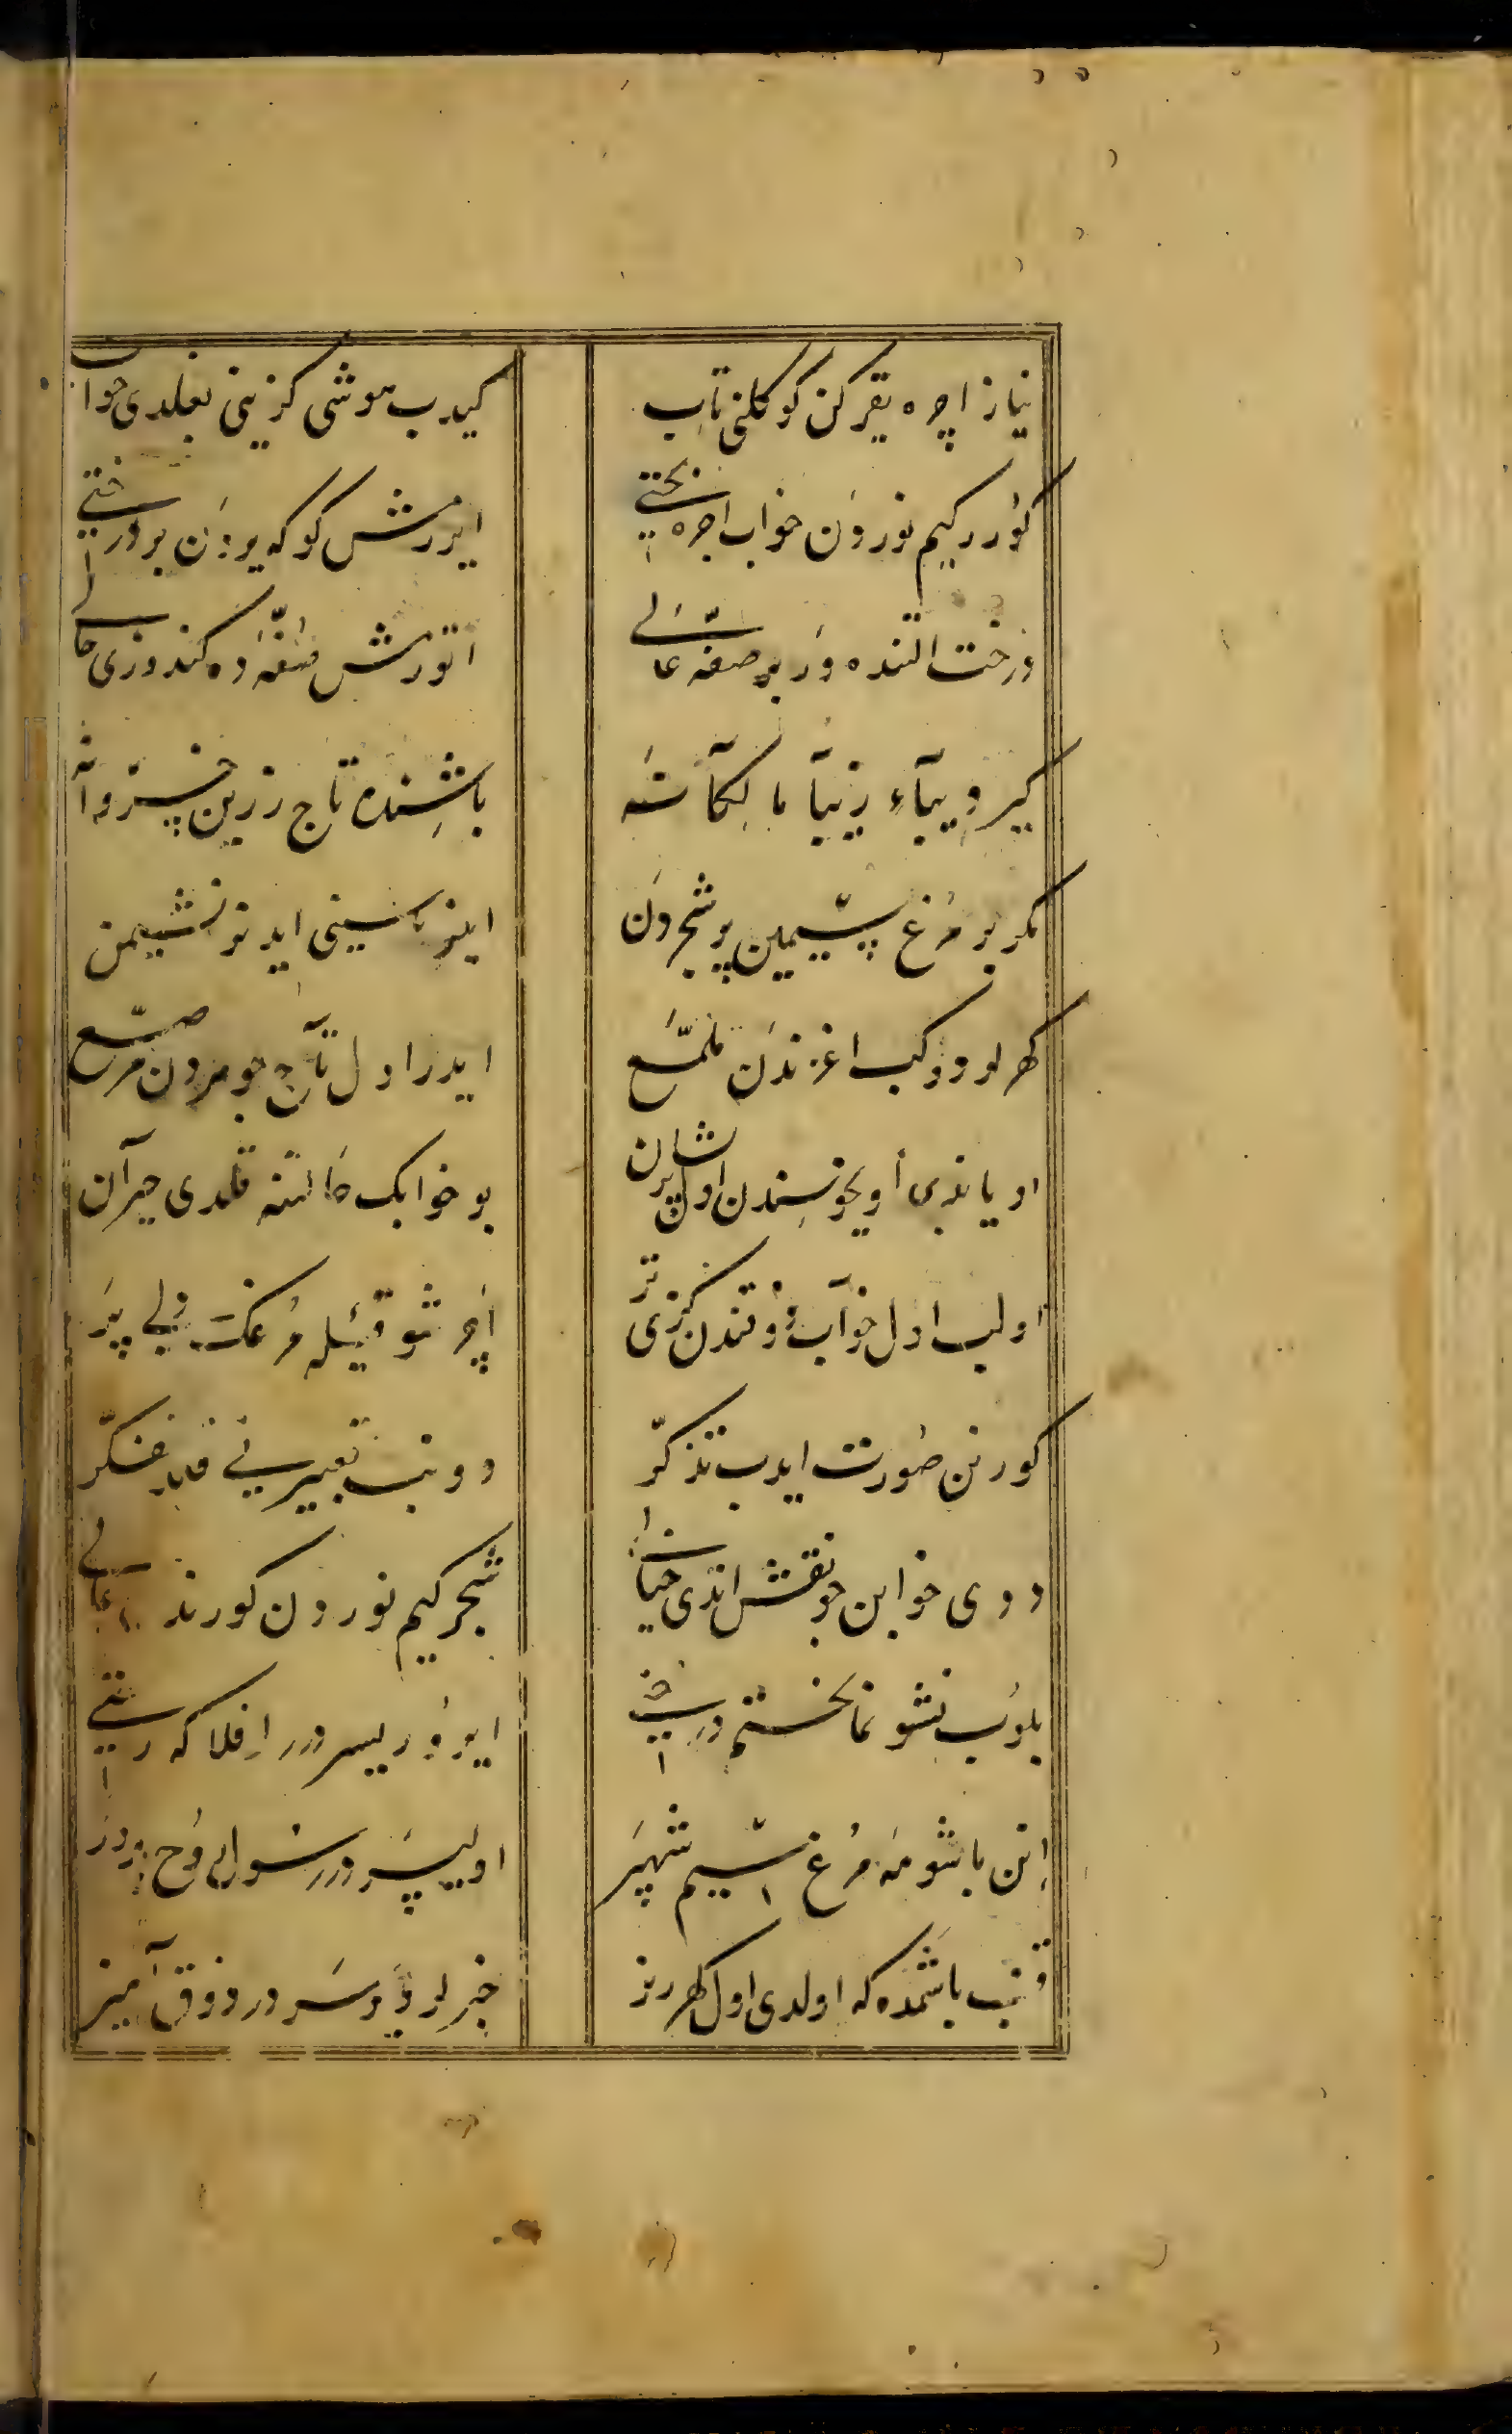 نیاز اچره یقرکن کوکلنی تاب
کیدب هوشی کزینی بغلدی خواب
کورر کیم نوردن خواب اچره بختی
ایررمش کوکه یردن بر درختی
درخت التنده در بر صفّه عالی
اتورمش صفّه ده کندوزی حالی
کیر دیبآء زیبآ مالکآنه
باشنده تاج زرین خسروانه
مکر بر مرغ سیمین پر شجردن
ایدنر نشیمن
کهرلر دوکب اغزندن ملمّع
ایدر اول تآج جوهردن مرصّع
اویاندی اویخوسندن اول پریشان
بو خوابک حالتنه قلدی حیرآن
اولب اول خوآب وقتندن کزی تر
اچر شوقیله مرغک ولی پر
کورنن صورت ایدب تذکّر
دونب تعبیرینی قلدی تفکّر
ددی خوابن جو نقش اندی خیالی
شجر کیم نوردن کورندی عالی
بلوب نشو نما نخستم درختی
ایروریسردر افلاکه رختی
اتن باشومه مرغ سیم شهپر
اولیسر در رسول روح پرور
قنب باشمده که اولدی اول کهرریز
خبرلر ویرسر در ذوق آمیز